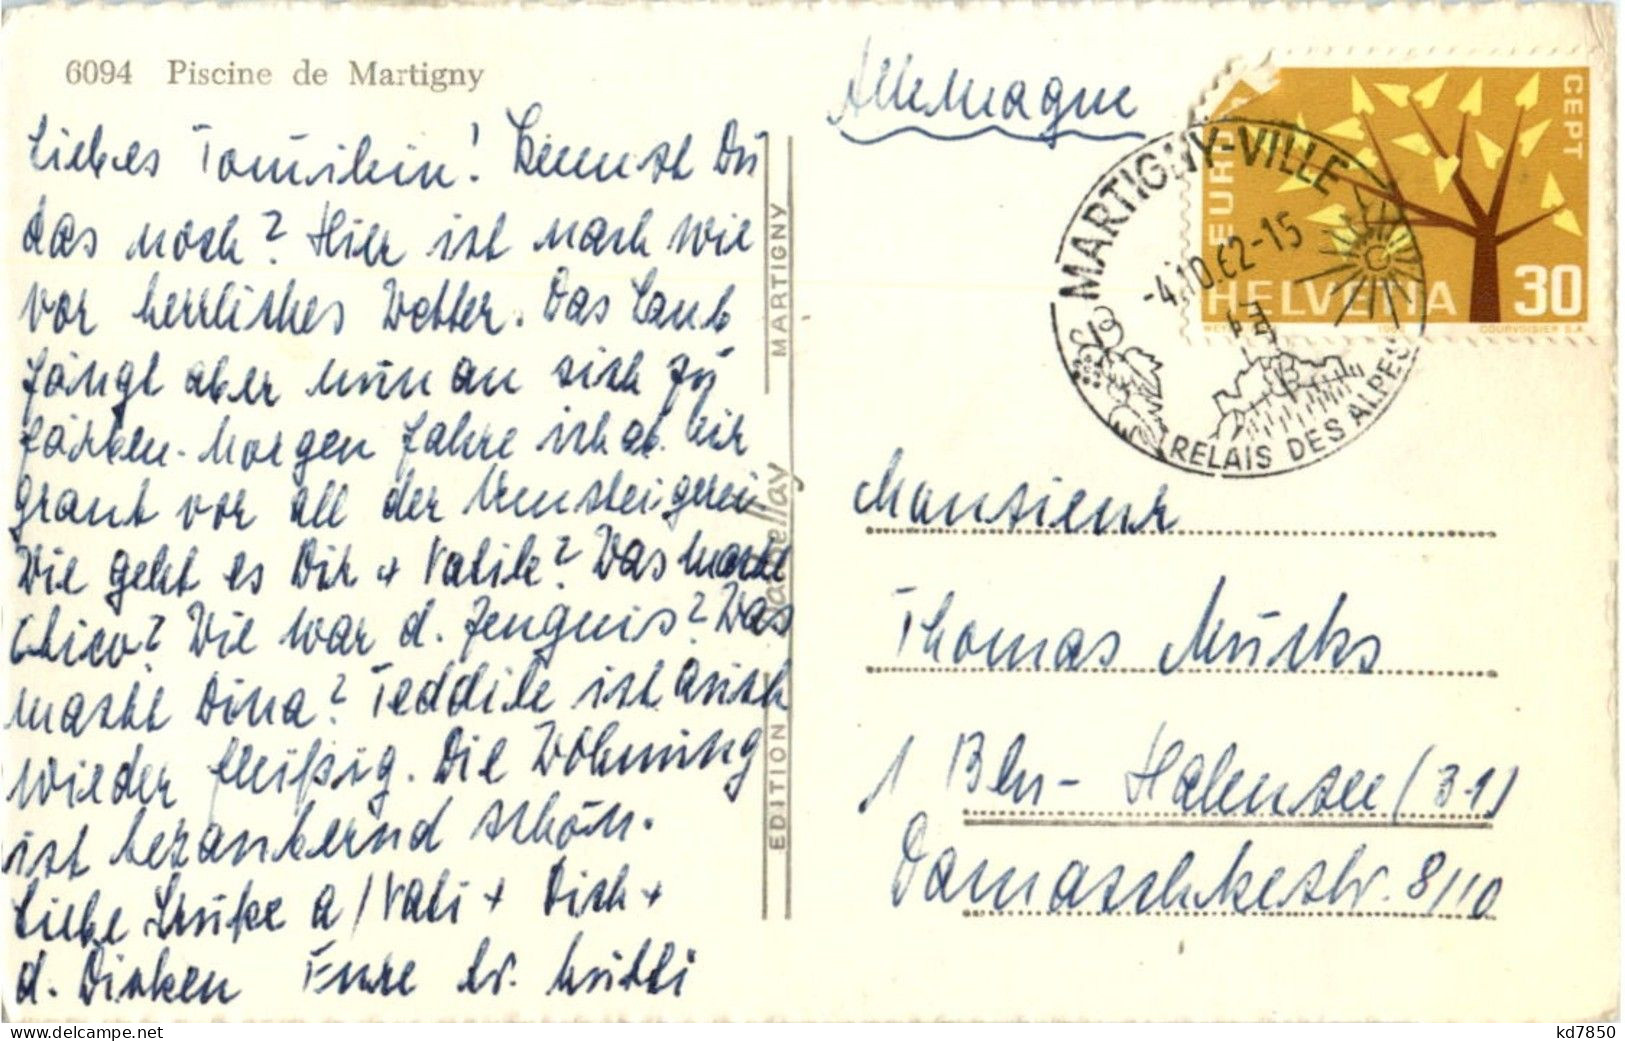 6094 Piscine de Martigny
Liebes Tomilein! Kennst Du
das noch? Hier ist nach wie
vor herrliches Wetter. Das Laub
fängt aber nun an sich zu
färben. Morgen fahre ich ab. Mir
graut vor all der Umsteigerei
Wie geht es Dir + Vatile? Was macht
Chico? Wie war d. Zeugnis? Was
macht Dina? Teddile ist auch
wieder fleißig. Die Wohnung
ist bezaubernd schön.
Liebe Grüße a/Vati + Dich +
d. Dinken Eure br. Mutti
EDITION DARBELLAY MARTIGNY
Allemagne
MARTIGNY-VILLE
-4.10.62-15
RELAIS DES ALPES
EUROPA
CEPT
HELVETIA 30
1962
COURVOISIER S.A.
Monsieur
Thomas
1 Bln-Halensee (31)
Damaschkestr. 8/10
kd7850